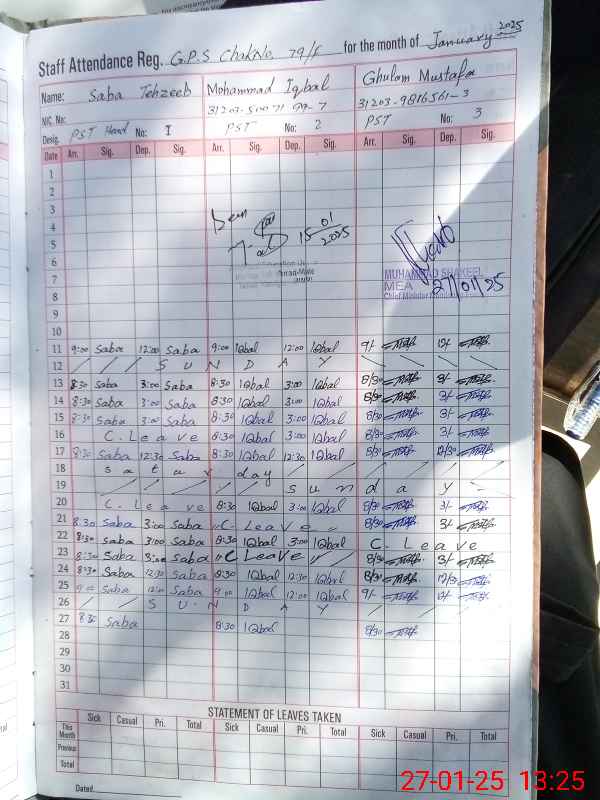 Staff Attendance Reg. G.P.S Chak No. 79/F for the month of January 2025
Name: Saba Tehzeeb Mohammad Iqbal Ghulam Mustafa
NIC. No: 31203-9816561-3
Desig. PST Head No: I PST No: 2 PST No: 3
Date Arr. Sig. Dep. Sig. Arr. Sig. Dep. Sig. Arr. Sig. Dep. Sig.
1
2
3
4
5 15/01/2025
6
7 MUHAMMAD SHAKEEL
MEA 27/01/25
8 Chief Minister
9
10
11 9:00 Saba 12:00 Saba 9:00 Iqbal 12:00 Iqbal 9/- 12/-
12 S U N D A Y
13 8:30 Saba 3:00 Saba 8:30 Iqbal 3:00 Iqbal 8/30 3/-
14 8:30 Saba 3:00 Saba 8:30 Iqbal 3:00 Iqbal 8/30 3/-
15 8:30 Saba 3:00 Saba 8:30 Iqbal 3:00 Iqbal 8/30 3/-
16 C. Leave 8:30 Iqbal 3:00 Iqbal 8/30 3/-
17 8:30 Saba 12:30 Saba 8:30 Iqbal 12:30 Iqbal 8/30 12/30
18 S a t u r d a y
19 S u n d a y
20 C. Leave 8:30 Iqbal 3:00 Iqbal 8/30 3/-
21 8:30 Saba 3:00 Saba "C- Leave 8/30 3/-
22 8:30 Saba 3:00 Saba 8:30 Iqbal 3:00 Iqbal C. Leave
23 8:30 Saba 3:00 Saba "C Leave" 8/30 3/-
24 8:30 Saba 12:30 Saba 8:30 Iqbal 12:30 Iqbal 8/30 12/30
25 9:00 Saba 12:00 Saba 9:00 Iqbal 12:00 Iqbal 9/- 12/-
26 S U N D A Y
27 8:30 Saba 8:30 Iqbal 8/30
28
29
30
31
STATEMENT OF LEAVES TAKEN
Sick Casual Pri. Total Sick Casual Pri. Total Sick Casual Pri. Total
This Month
Previous
Total
Dated
27-01-25 13:25